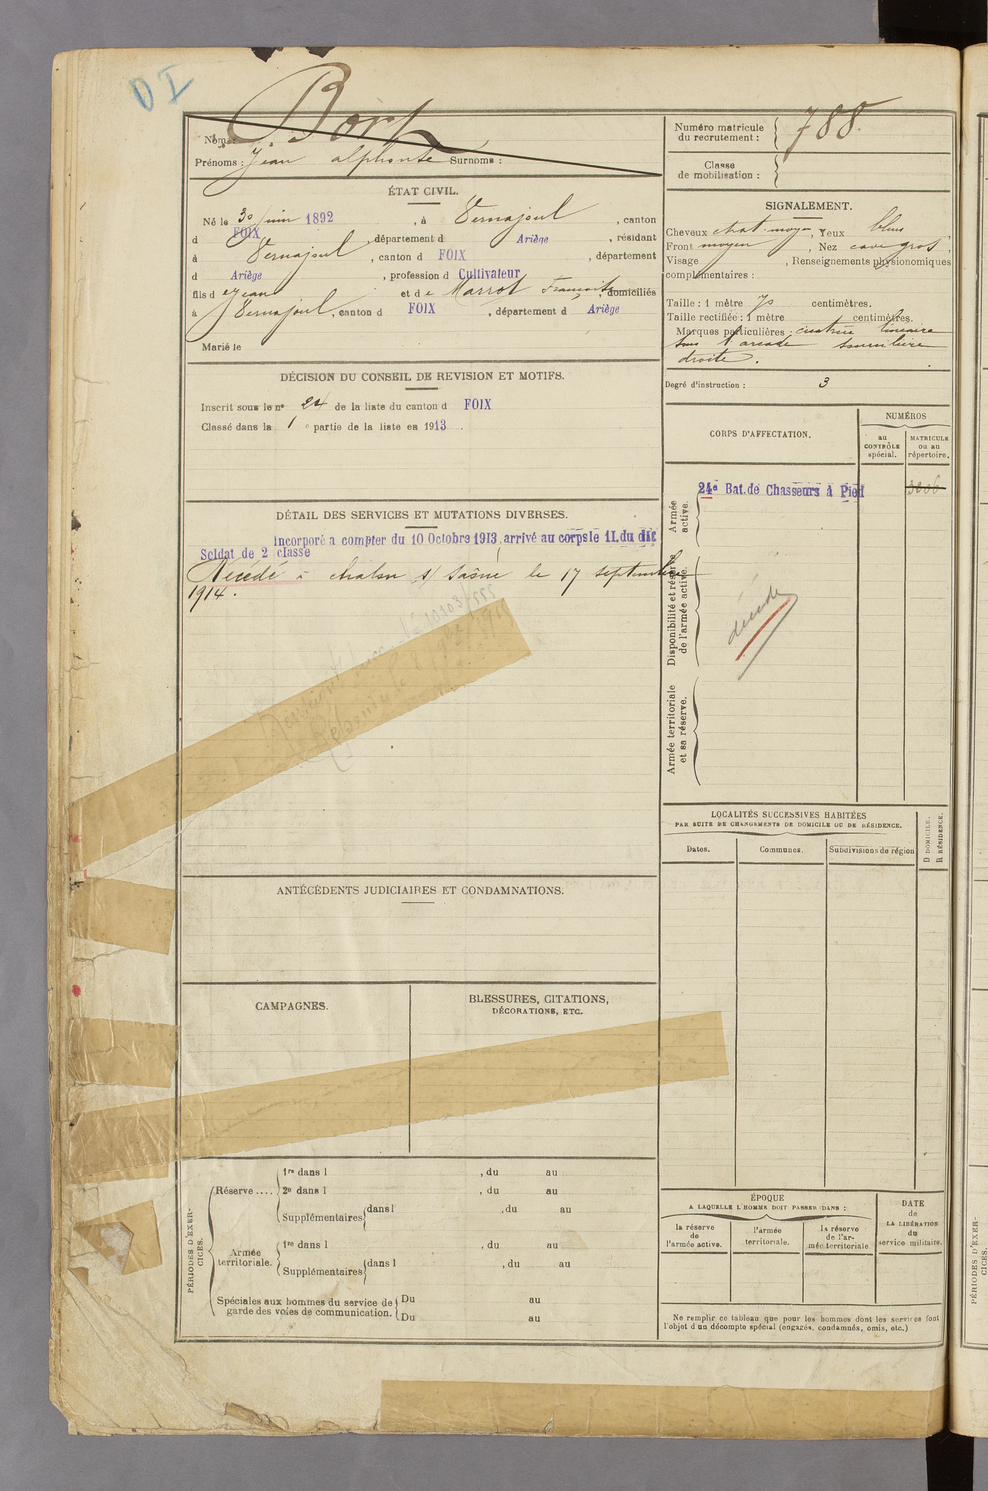 DI
Nom : Bort
Prénoms : Jean alphonse Surnoms :
Numéro matricule
du recrutement : 788
Classe
de mobilisation :
ÉTAT CIVIL.
Né le 30 juin 1892, à Vernajoul, canton
d FOIX, département d Ariège, résidant
à Vernajoul, canton d FOIX, département
d Ariège, profession d Cultivateur
fils d e Jean et de Marrot Francoise, domiciliés
à Vernajoul, canton d FOIX, département d Ariège
Marié le
SIGNALEMENT.
Cheveux chat. moyen, Yeux bleus
Front moyen, Nez cave gros,
Visage , Renseignements physionomiques
complémentaires :
Taille : 1 mètre 70 centimètres.
Taille rectifiée : 1 mètre centimètres.
Marques particulières : cicatrice lineaire
sous l'arcade sourcilière
droite.
Degré d'instruction : 3
DÉCISION DU CONSEIL DE REVISION ET MOTIFS.
Inscrit sous le no 24 de la liste du canton d FOIX
Classé dans la 1e partie de la liste en 1913.
DÉTAIL DES SERVICES ET MUTATIONS DIVERSES.
Incorporé a compter du 10 Octobre 1913, arrivé au corps le 11 du dit
Soldat de 2 classe
Décédé à chalon s/ saône le 17 septembre
1914.
CORPS D'AFFECTATION.
NUMÉROS
au
CONTRÔLE
spécial.
MATRICULE
ou au
répertoire.
Armée
active.
24e Bat. de Chasseurs à Pied
3206
Disponibilité et réserve
de l'armée active.
décédé
Armée territoriale
et sa réserve.
LOCALITÉS SUCCESSIVES HABITÉES
PAR SUITE DE CHANGEMENTS DE DOMICILE OU DE RÉSIDENCE.
Dates.
Communes.
Subdivisions de région
D DOMICILE.
R RÉSIDENCE.
ANTÉCÉDENTS JUDICIAIRES ET CONDAMNATIONS.
CAMPAGNES.
BLESSURES, CITATIONS,
DÉCORATIONS, ETC.
PÉRIODES D'EXER-
CICES.
Réserve ....
1re dans l , du au
2e dans l , du au
Supplémentaires dans l , du au
Armée
territoriale.
1re dans l , du au
Supplémentaires dans l , du au
Spéciales aux hommes du service de
garde des voies de communication.
Du au
Du au
ÉPOQUE
A LAQUELLE L'HOMME DOIT PASSER DANS :
la réserve
de
l'armée active.
l'armée
territoriale.
la réserve
de l'ar-
mée territoriale
DATE
de
LA LIBÉRATION
du
service militaire.
Ne remplir ce tableau que pour les hommes dont les services font
l'objet d'un décompte spécial (engagés, condamnés, omis, etc.)
PÉRIODES D'EXER-
CICES.